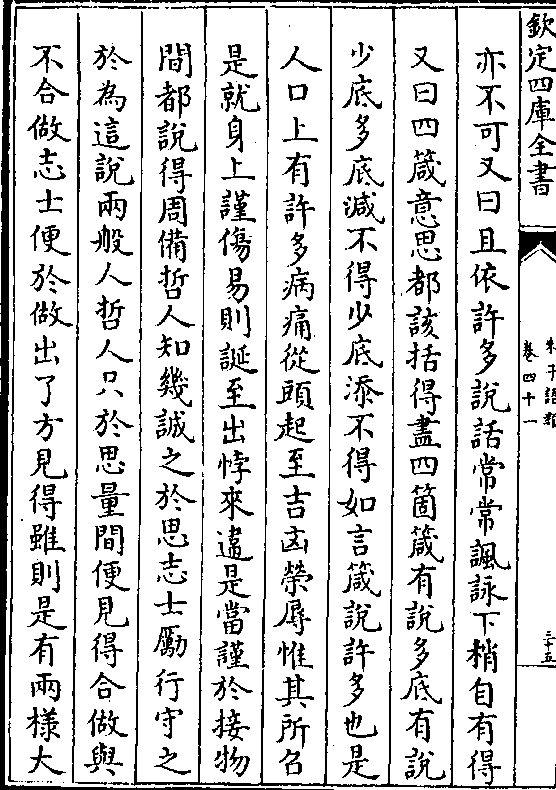 欽定四庫全書
朱子語類
卷四十一
三十五
亦不可又曰且依許多說話常常諷詠下梢自有得
又曰四箴意思都該括得盡四箇箴有說多底有說
少底多底減不得少底添不得如言箴說許多也是
人口上有許多病痛從頭起至吉凶榮辱惟其所召
是就身上謹傷易則誕至出悖來違是當謹於接物
間都說得周備哲人知幾誠之於思志士勵行守之
於為這說兩般人哲人只於思量間便見得合做與
不合做志士便於做出了方見得雖則是有兩樣大